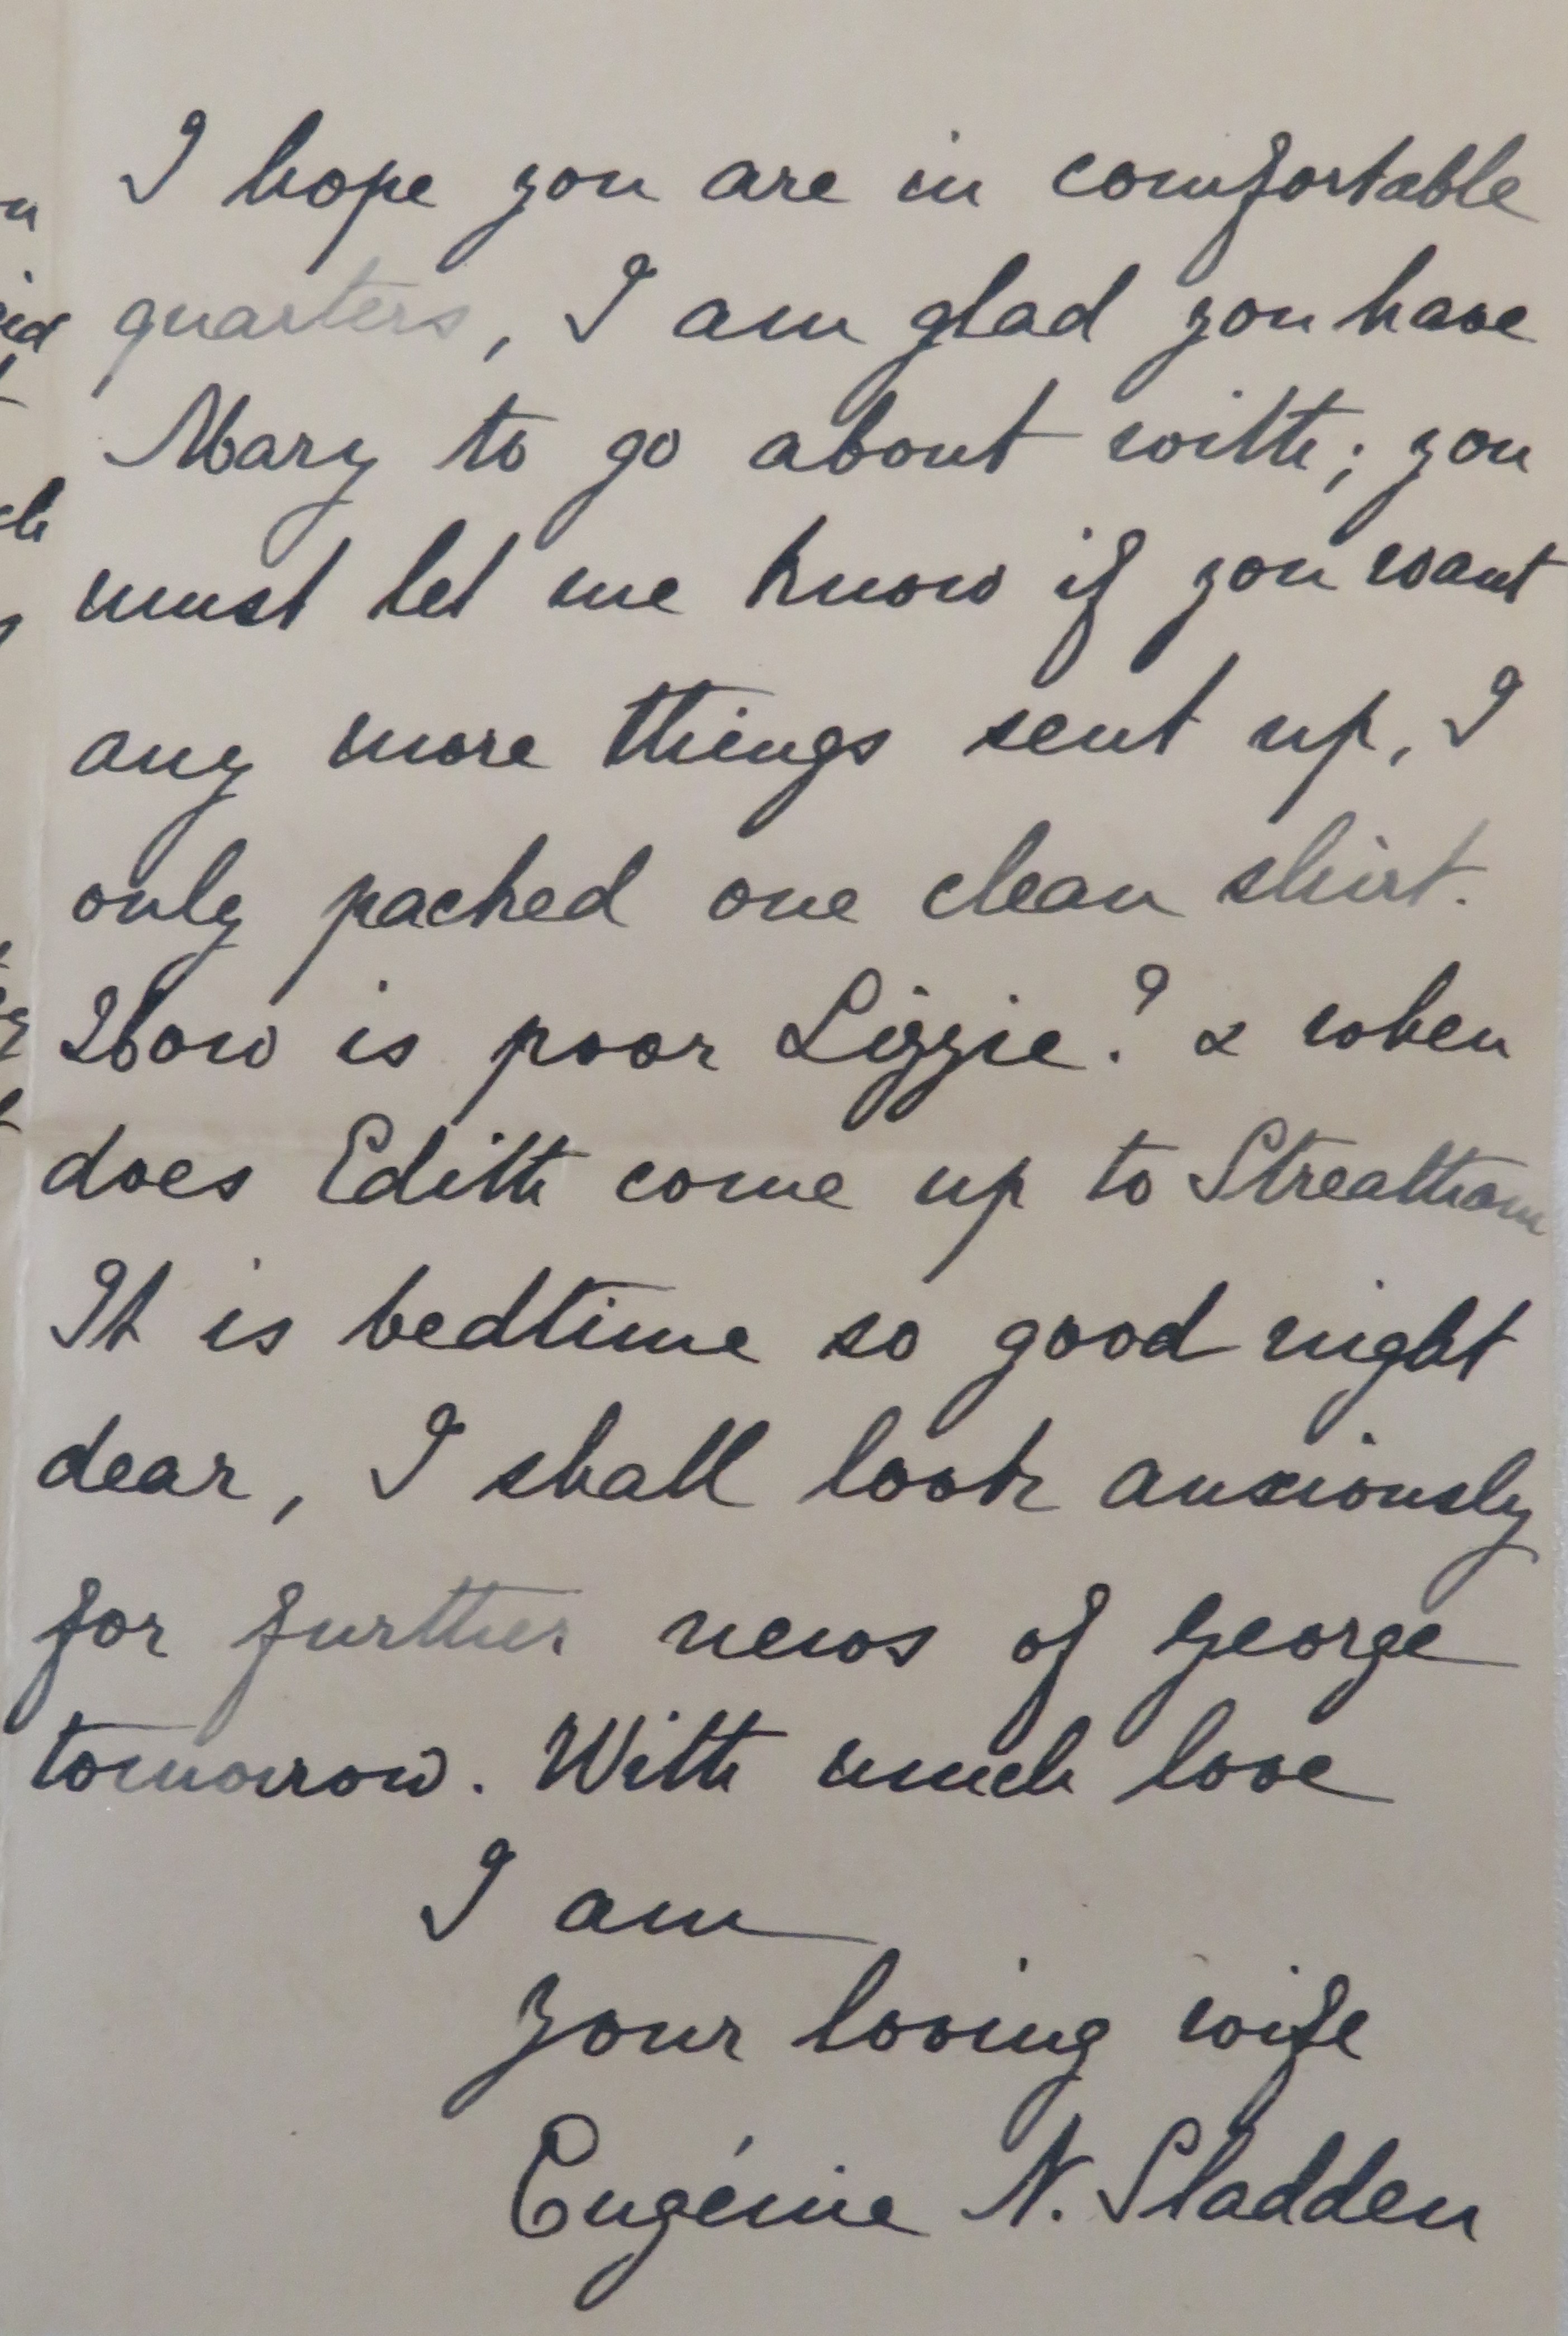 I hope you are in comfortable
quarters, I am glad you have
Mary to go about with; you
must let me know if you want
any more things sent up, I
only packed one clean shirt.
How is poor Lizzie? & when
does Edith come up to Streatham
It is bedtime so good night
dear, I shall look anxiously
for further news of George
tomorrow. With much love
I am
your loving wife
Eugénie N. Sladden